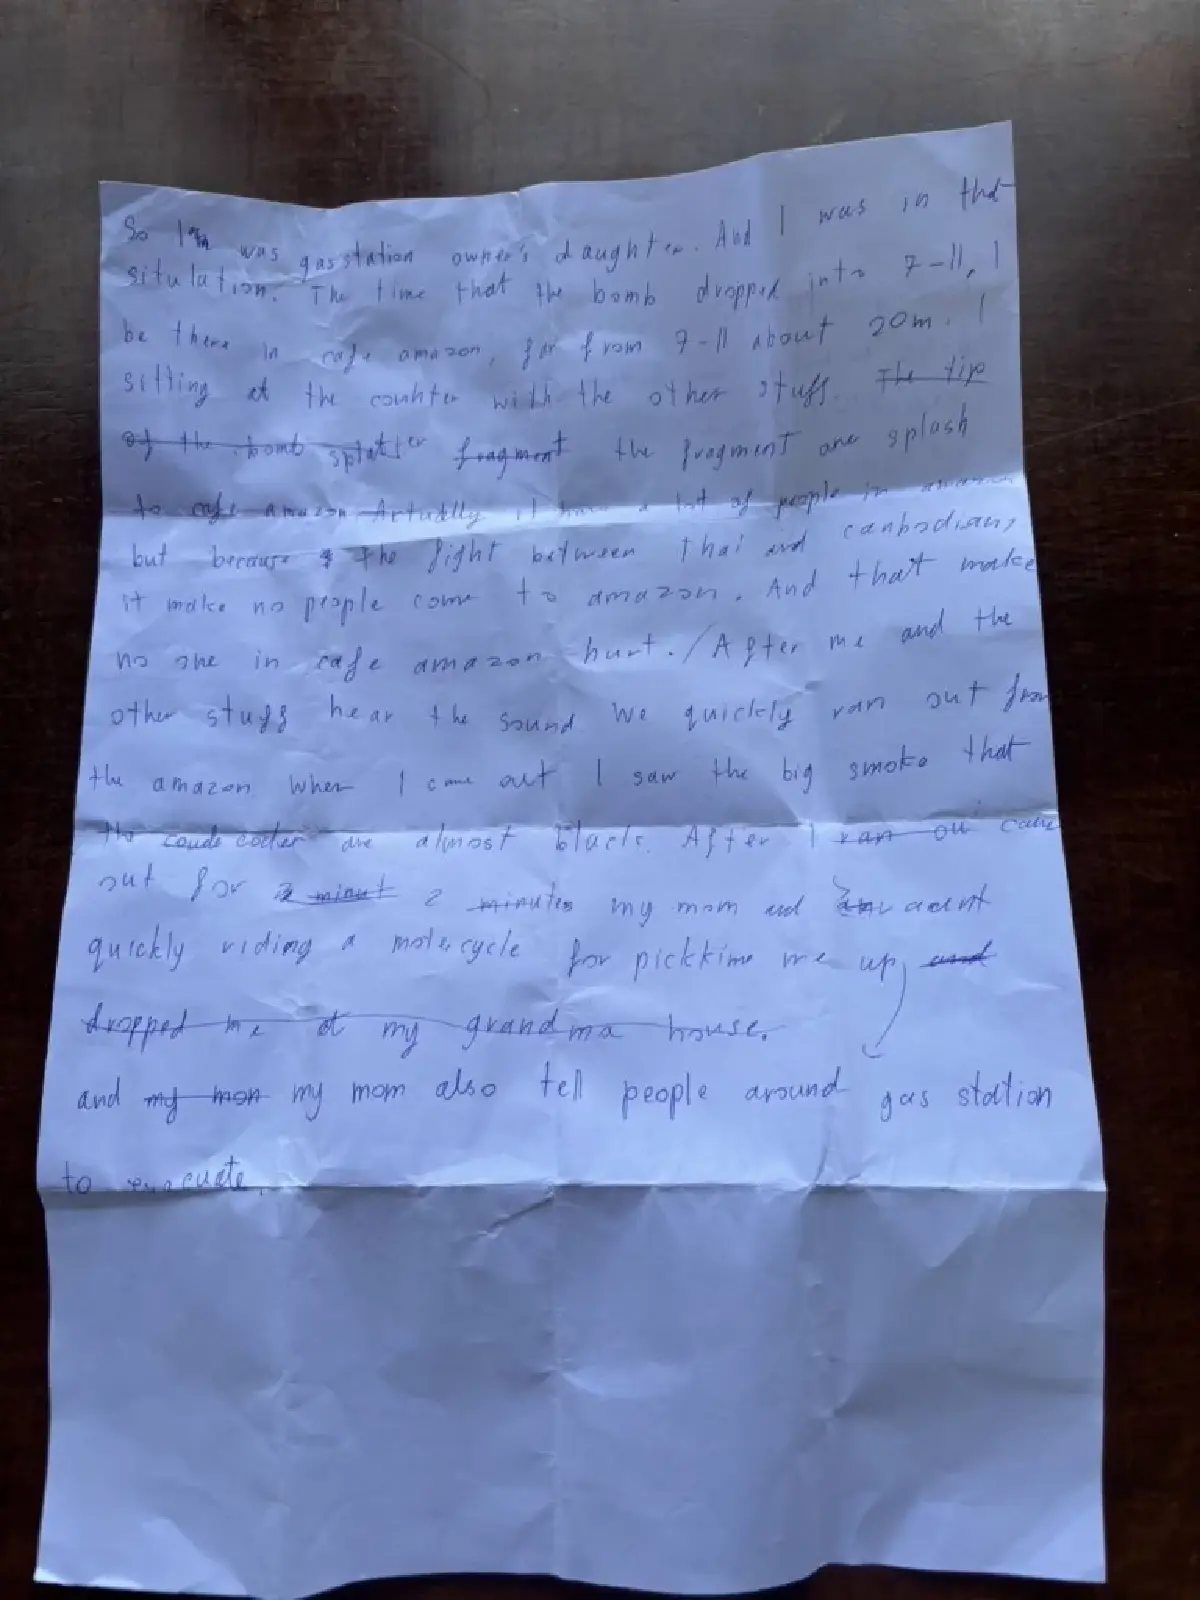 So I was gasstation owner's daughter. And I was in that
situlation. The time that the bomb dropped into 7-11, I
be there in cafe amazon, far from 7-11 about 20m. I
sitting at the counter with the other stuff. The tip
of the bomb splatter fragment the fragment are splash
to cafe amazon Artudlly it have a lot of people in amazon
but because the fight between thai and canbodians,
it make no people come to amazon. And that make
no one in cafe amazon hurt. / After me and the
other stuff hear the sound We quickly ran out from
the amazon when I came out I saw the big smoke that
the are almost black. After I ran ou came
out for 2 minut 2 minutes my mom and
quickly riding a motercycle for pickking me up, and
dropped me at my grandma house.
and my mon my mom also tell people around gas station
to evacuate.